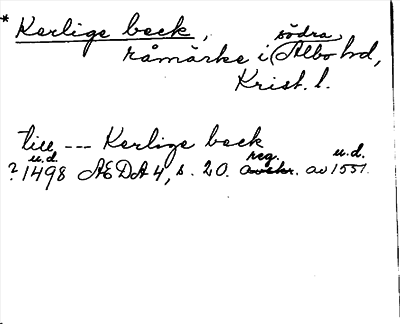 * Kerlige beck,
råmärke i södra Albo hd,
Krist. l.
till --- Kerlige beck
? u.d. 1498 AEDA 4, s. 20. reg. avskr. av u.d. 1551.